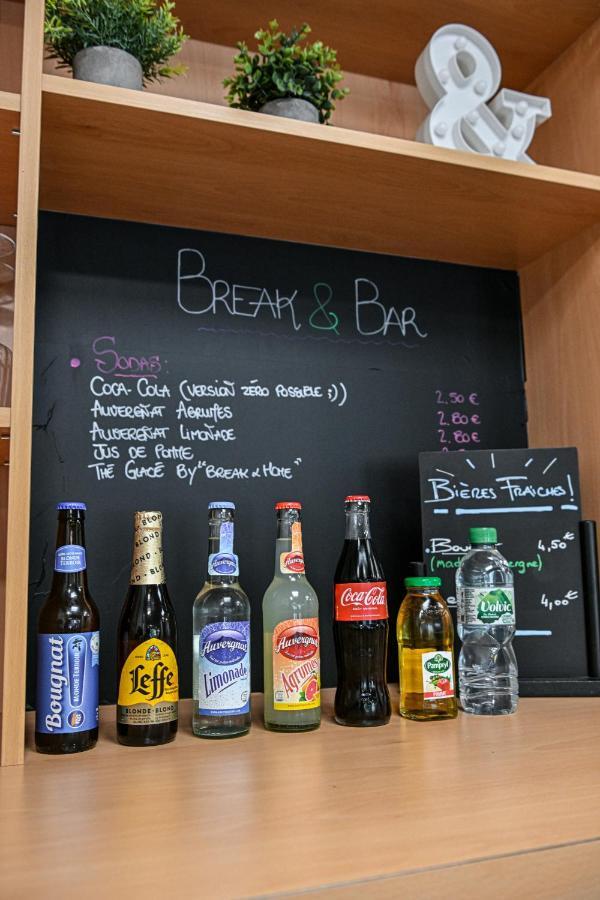 &
BREAK & BAR
SODAS:
COCA-COLA (VERSION ZÉRO POSSIBLE ;)) 2,50 €
AUVERGNAT AGRUMES 2,80 €
AUVERGNAT LIMONADE 2,80 €
JUS DE POMME
THÉ GLACÉ BY "BREAK & HOME"
BIÈRES FRAÎCHES!
4,50€
4,00€
BLOND
BLONDE TERROIR
Bougnat
BLONDE TERROIR
Leffe
BLONDE·BLOND
Auvergnat
Limonade
Auvergnat
Agrumes
Coca-Cola
Pampryl
POMME
Volvic